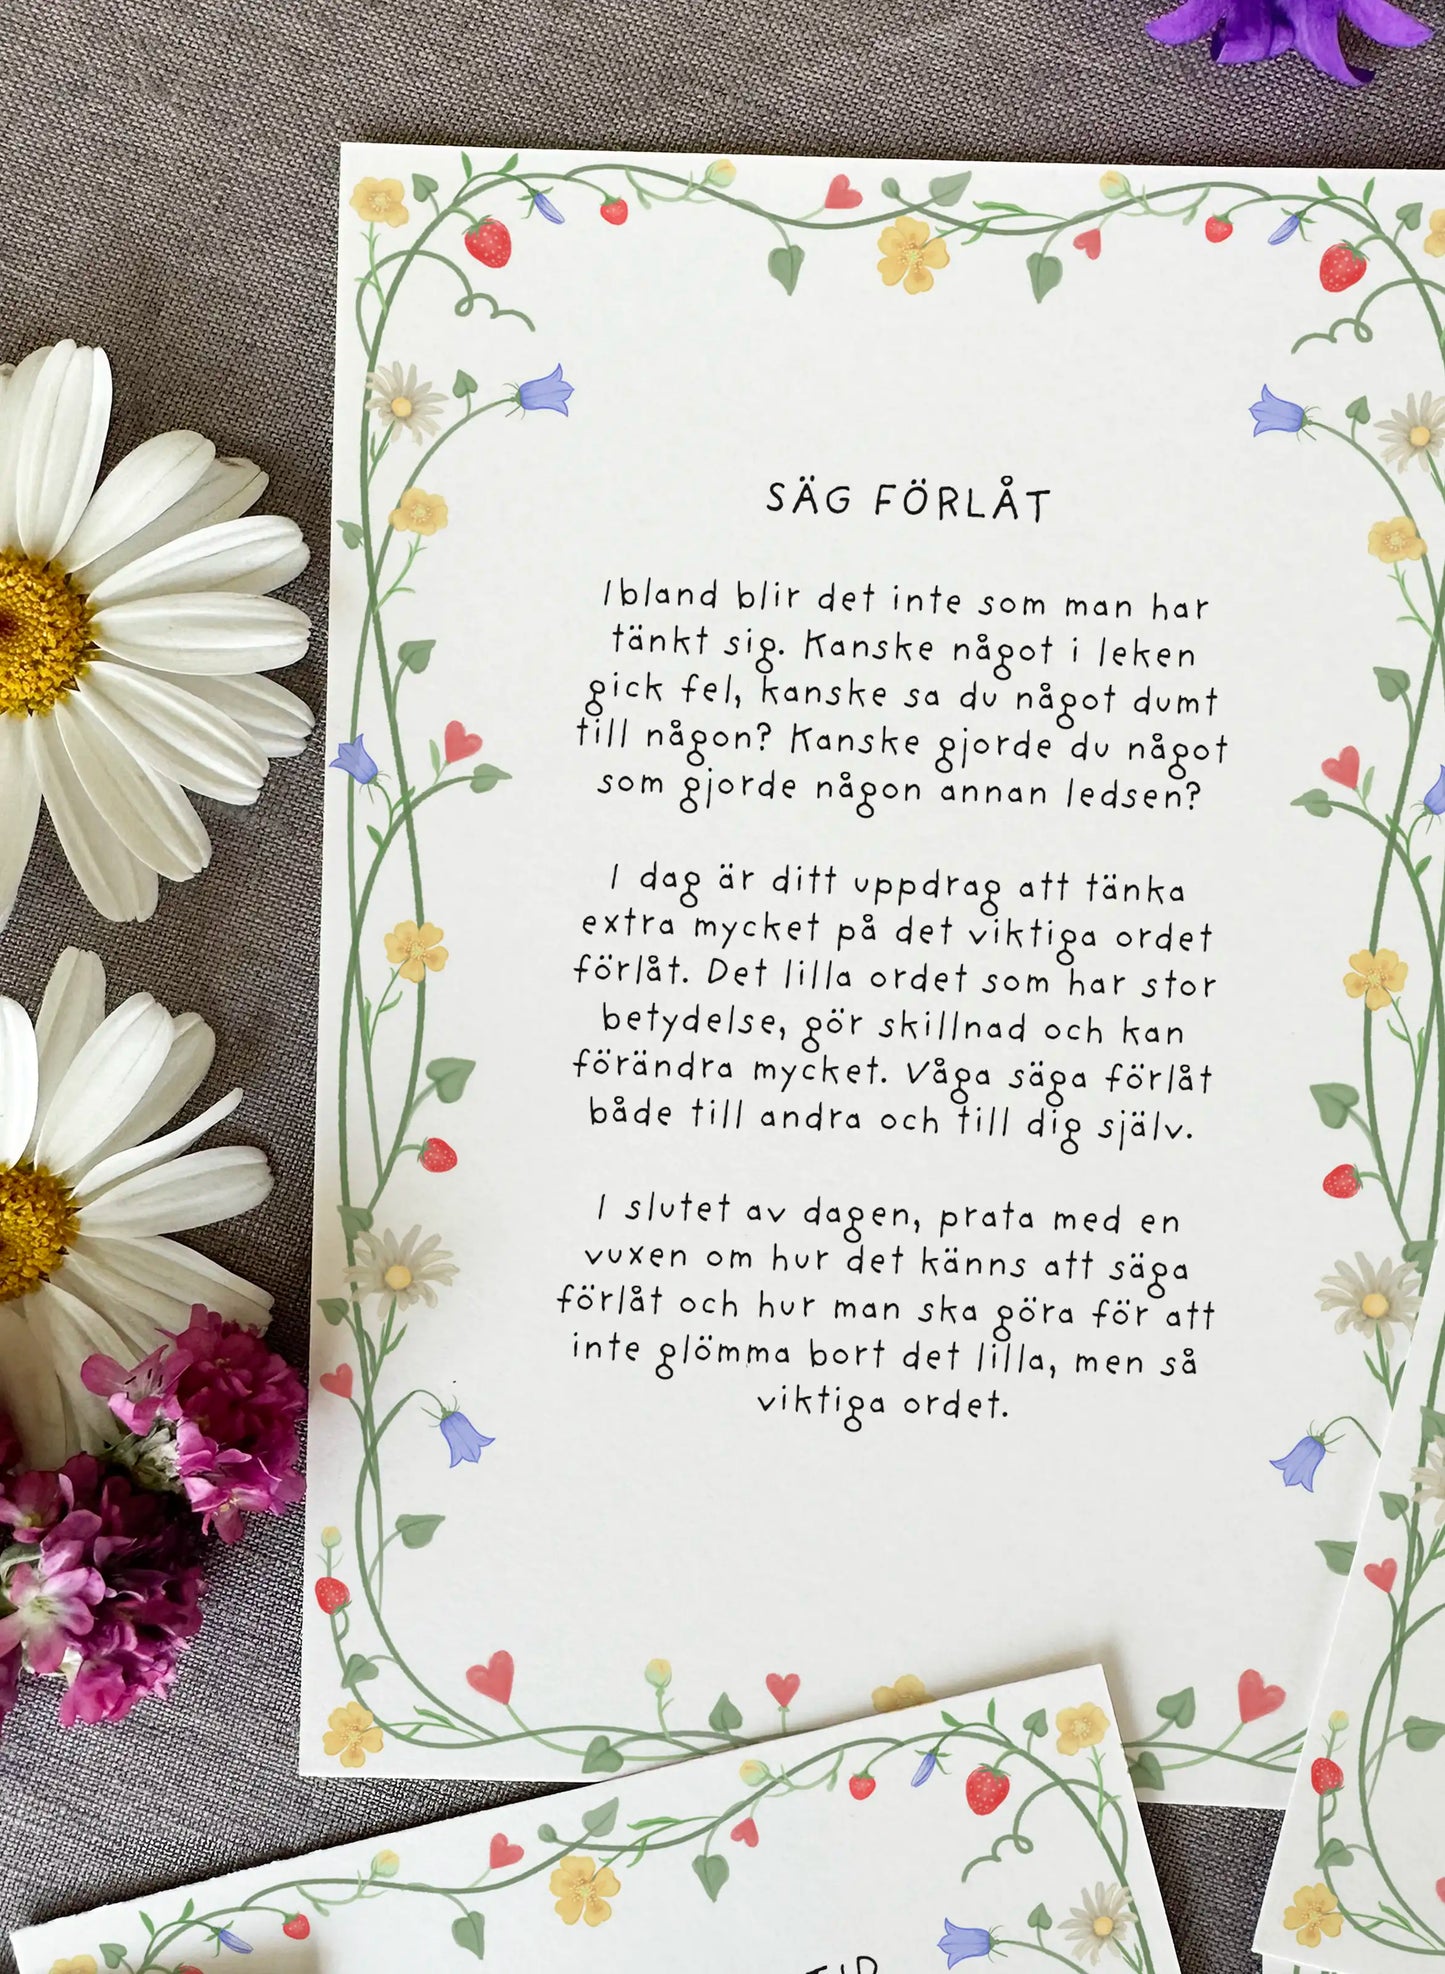 SÄG FÖRLÅT
Ibland blir det inte som man har
tänkt sig. Kanske något i leken
gick fel, kanske sa du något dumt
till någon? Kanske gjorde du något
som gjorde någon annan ledsen?
I dag är ditt uppdrag att tänka
extra mycket på det viktiga ordet
förlåt. Det lilla ordet som har stor
betydelse, gör skillnad och kan
förändra mycket. Våga säga förlåt
både till andra och till dig själv.
I slutet av dagen, prata med en
vuxen om hur det känns att säga
förlåt och hur man ska göra för att
inte glömma bort det lilla, men så
viktiga ordet.